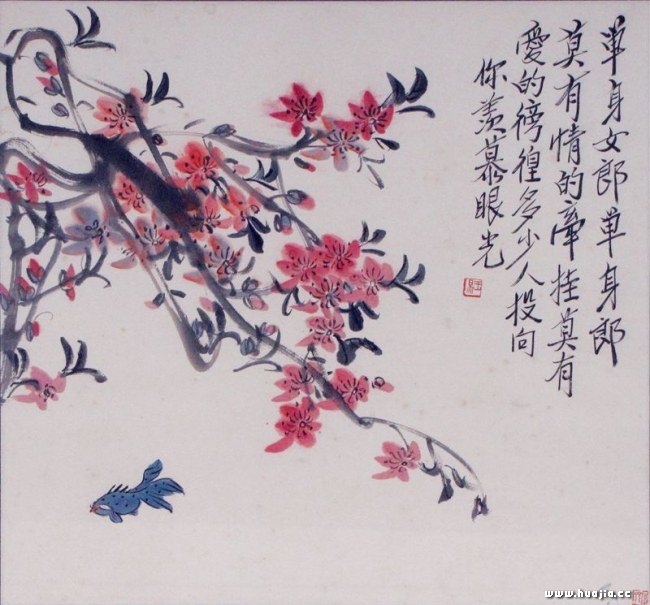 单身女郎单身郎
莫有情的牽挂莫有
愛的徬徨多少人投向
你羡慕眼光
www.huajia.cc